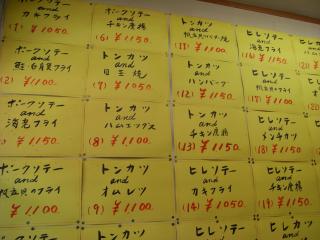 and
カキフライ
(1) ¥1050.
and
(2) ¥1100.
ポークソテー
and
海老フライ
¥1100.
ポークソテー
and
帆立貝のフライ
¥1100
ポークソテー
and
チキン唐揚
(6) ¥1150.
トンカツ
and
目玉焼
(7) ¥1050.
トンカツ
and
ハムエッグス
(8) ¥1100.
トンカツ
and
オムレツ
(9) ¥1100.
トンカツ
トンカツ
and
(11) ¥1100.
トンカツ
and
ハンバーグ
(12) ¥1150.
トンカツ
and
チキン唐揚
(13) ¥1150.
ヒレソテー
and
カキフライ
(14) ¥1050.
ヒレソテー
and
ヒレソテー
and
海老フライ
(16) ¥1150.
ヒレソテー
and
(17) ¥1150.
ヒレソテー
and
メンチカツ
(18) ¥1150.
ヒレソテー
and
チキン唐揚
(19) ¥1150.